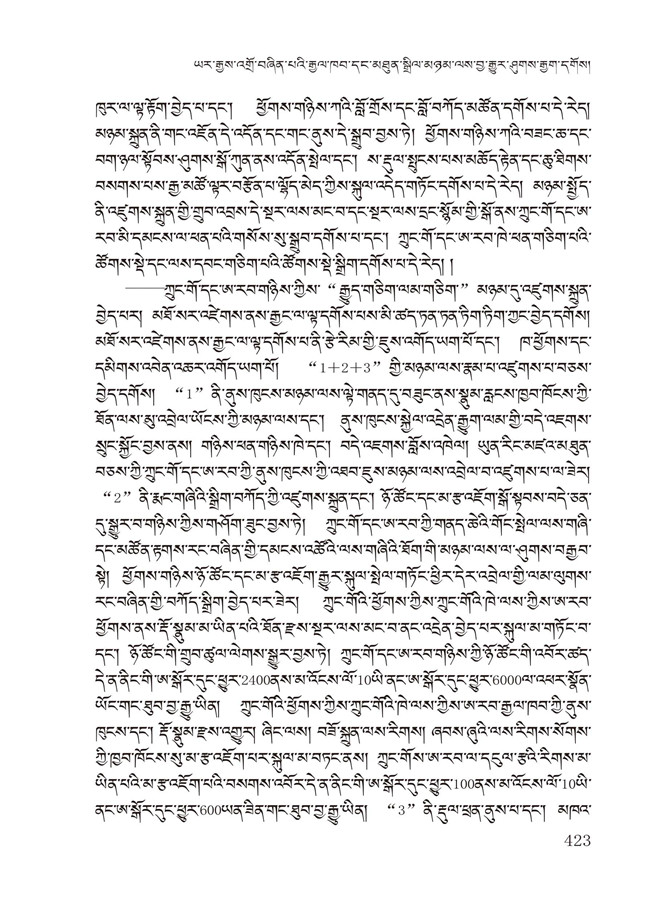 ཡར་རྒྱས་འགྲོ་བཞིན་པའི་རྒྱལ་ཁབ་དང་མཐུན་སྒྲིལ་མཉམ་ལས་བྱ་རྒྱུར་ཤུགས་རྒྱག་དགོས།
ཁུར་ལ་ལྟ་རྟོག་བྱེད་པ་དང་། ཕྱོགས་གཉིས་ཀའི་བློ་གྲོས་དང་བློ་བཀོད་མཚོན་དགོས་པ་དེ་རེད།
མཉམ་སྐྲུན་ནི་གང་འཇོན་དེ་འདོན་དང་གང་ནུས་དེ་སྒྲུབ་བྱས་ཏེ། ཕྱོགས་གཉིས་ཀའི་བཟང་ཆ་དང་
བག་ཉལ་སྟོབས་ཤུགས་སྒོ་ཀུན་ནས་འདོན་སྤེལ་དང་། ས་རྡུལ་སྤུངས་པས་མཆོད་རྟེན་དང་ཆུ་ཐིགས་
བསགས་པས་རྒྱ་མཚོ་ལྟར་བརྩོན་པ་ལྷོད་མེད་ཀྱིས་སྐུལ་འདེད་གཏོང་དགོས་པ་དེ་རེད། མཉམ་སྤྱོད་
ནི་འཛུགས་སྐྲུན་གྱི་གྲུབ་འབྲས་དེ་སྔར་ལས་མང་བ་དང་སྔར་ལས་དྲང་སྙོམ་གྱི་སྒོ་ནས་ཀྲུང་གོ་དང་ཨ་
རབ་མི་དམངས་ལ་ཕན་པའི་གསོས་སུ་སྒྲུབ་དགོས་པ་དང་། ཀྲུང་གོ་དང་ཨ་རབ་ཁེ་ཕན་གཅིག་པའི་
ཚོགས་སྡེ་དང་ལས་དབང་གཅིག་པའི་ཚོགས་སྡེ་སྒྲིག་དགོས་པ་དེ་རེད། །
———ཀྲུང་གོ་དང་ཨ་རབ་གཉིས་ཀྱིས་ “རྒྱུད་གཅིག་ལམ་གཅིག” མཉམ་དུ་འཛུགས་སྐྲུན་
བྱེད་པར། མཐོ་སར་འཛེགས་ནས་རྒྱང་ལ་ལྟ་དགོས་པས་མི་ཚད་ཏན་ཏན་ཏིག་ཏིག་ཀྱང་བྱེད་དགོས།
མཐོ་སར་འཛེགས་ནས་རྒྱང་ལ་ལྟ་དགོས་པ་ནི་རྩེ་རིམ་གྱི་ཇུས་འགོད་ཡག་པོ་དང་། ཁ་ཕྱོགས་དང་
དམིགས་འབེན་འཆར་འགོད་ཡག་པོ། “1+2+3” གྱི་མཉམ་ལས་རྣམ་པ་འཛུགས་པ་བཅས་
བྱེད་དགོས། “1” ནི་ནུས་ཁུངས་མཉམ་ལས་ལྟེ་གནད་དུ་བཟུང་ནས་སྣུམ་རླངས་ཁྱབ་ཁོངས་ཀྱི་
ཐོན་ལས་མུ་འབྲེལ་ཡོངས་ཀྱི་མཉམ་ལས་དང་། ནུས་ཁུངས་སྐྱེལ་འདྲེན་རྒྱུག་ལམ་གྱི་བདེ་འཇགས་
སྲུང་སྐྱོང་བྱས་ནས། གཉིས་ཕན་གཉིས་ཁེ་དང་། བདེ་འཇགས་བློས་འཁེལ། ཡུན་རིང་མཛའ་མཐུན་
བཅས་ཀྱི་ཀྲུང་གོ་དང་ཨ་རབ་ཀྱི་ནུས་ཁུངས་ཀྱི་འཐབ་ཇུས་མཉམ་ལས་འབྲེལ་བ་འཛུགས་པ་ལ་ཟེར།
“2” ནི་རྨང་གཞིའི་སྒྲིག་བཀོད་ཀྱི་འཛུགས་སྐྲུན་དང་། ཉོ་ཚོང་དང་མ་རྩ་འཇོག་སྒོ་སྟབས་བདེ་ཅན་
དུ་སྒྱུར་བ་གཉིས་ཀྱིས་གཤོག་ཟུང་བྱས་ཏེ། ཀྲུང་གོ་དང་ཨ་རབ་ཀྱི་གནད་ཆེའི་གོང་སྤེལ་ལས་གཞི་
དང་མཚོན་རྟགས་རང་བཞིན་གྱི་དམངས་འཚོའི་ལས་གཞིའི་ཐོག་གི་མཉམ་ལས་ལ་ཤུགས་བརྒྱབ་
སྟེ། ཕྱོགས་གཉིས་ཉོ་ཚོང་དང་མ་རྩ་འཇོག་རྒྱུར་སྐུལ་སྤེལ་གཏོང་ཕྱིར་དེར་འབྲེལ་གྱི་ལམ་ལུགས་
རང་བཞིན་གྱི་བཀོད་སྒྲིག་བྱེད་པར་ཟེར། ཀྲུང་གོའི་ཕྱོགས་ཀྱིས་ཀྲུང་གོའི་ཁེ་ལས་ཀྱིས་ཨ་རབ་
ཕྱོགས་ནས་རྡོ་སྣུམ་མ་ཡིན་པའི་ཐོན་རྫས་སྔར་ལས་མང་བ་ནང་འདྲེན་བྱེད་པར་སྐུལ་མ་གཏོང་བ་
དང་། ཉོ་ཚོང་གི་གྲུབ་ཚུལ་ལེགས་སྒྱུར་བྱས་ཏེ། ཀྲུང་གོ་དང་ཨ་རབ་གཉིས་ཀྱི་ཉོ་ཚོང་གི་འབོར་ཚད་
དེ་ན་ནིང་གི་ཨ་སྒོར་དུང་ཕྱུར་2400ནས་མ་འོངས་ལོ་10ཡི་ནང་ཨ་སྒོར་དུང་ཕྱུར་6000ལ་འཕར་སྣོན་
ཡོང་གང་ཐུབ་བྱ་རྒྱུ་ཡིན། ཀྲུང་གོའི་ཕྱོགས་ཀྱིས་ཀྲུང་གོའི་ཁེ་ལས་ཀྱིས་ཨ་རབ་རྒྱལ་ཁབ་ཀྱི་ནུས་
ཁུངས་དང་། རྡོ་སྣུམ་རྫས་འགྱུར། ཞིང་ལས། བཟོ་སྐྲུན་ལས་རིགས། ཞབས་ཞུའི་ལས་རིགས་སོགས་
ཀྱི་ཁྱབ་ཁོངས་སུ་མ་རྩ་འཇོག་པར་སྐུལ་མ་བཏང་ནས། ཀྲུང་གོས་ཨ་རབ་ལ་དངུལ་རྩའི་རིགས་མ་
ཡིན་པའི་མ་རྩ་འཇོག་པའི་བསགས་འབོར་དེ་ན་ནིང་གི་ཨ་སྒོར་དུང་ཕྱུར་100ནས་མ་འོངས་ལོ་10ཡི་
ནང་ཨ་སྒོར་དུང་ཕྱུར་600ཡན་ཟིན་གང་ཐུབ་བྱ་རྒྱུ་ཡིན། “3” ནི་རྡུལ་ཕྲན་ནུས་པ་དང་། མཁའ་
423